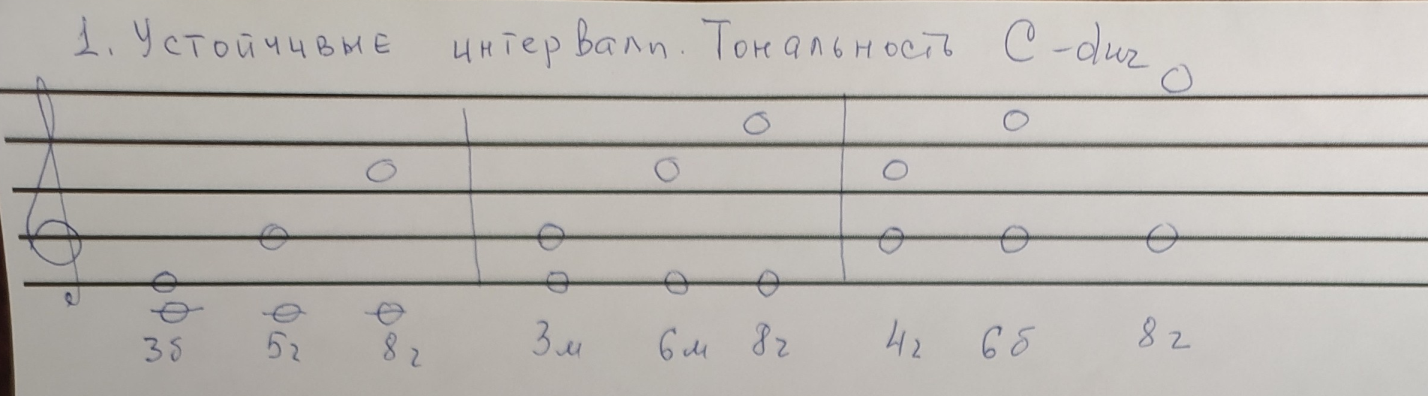 1. Устойчивые интервалы. Тональность C-dur
3б 5ч 8ч 3м 6м 8ч 4ч 6б 8ч